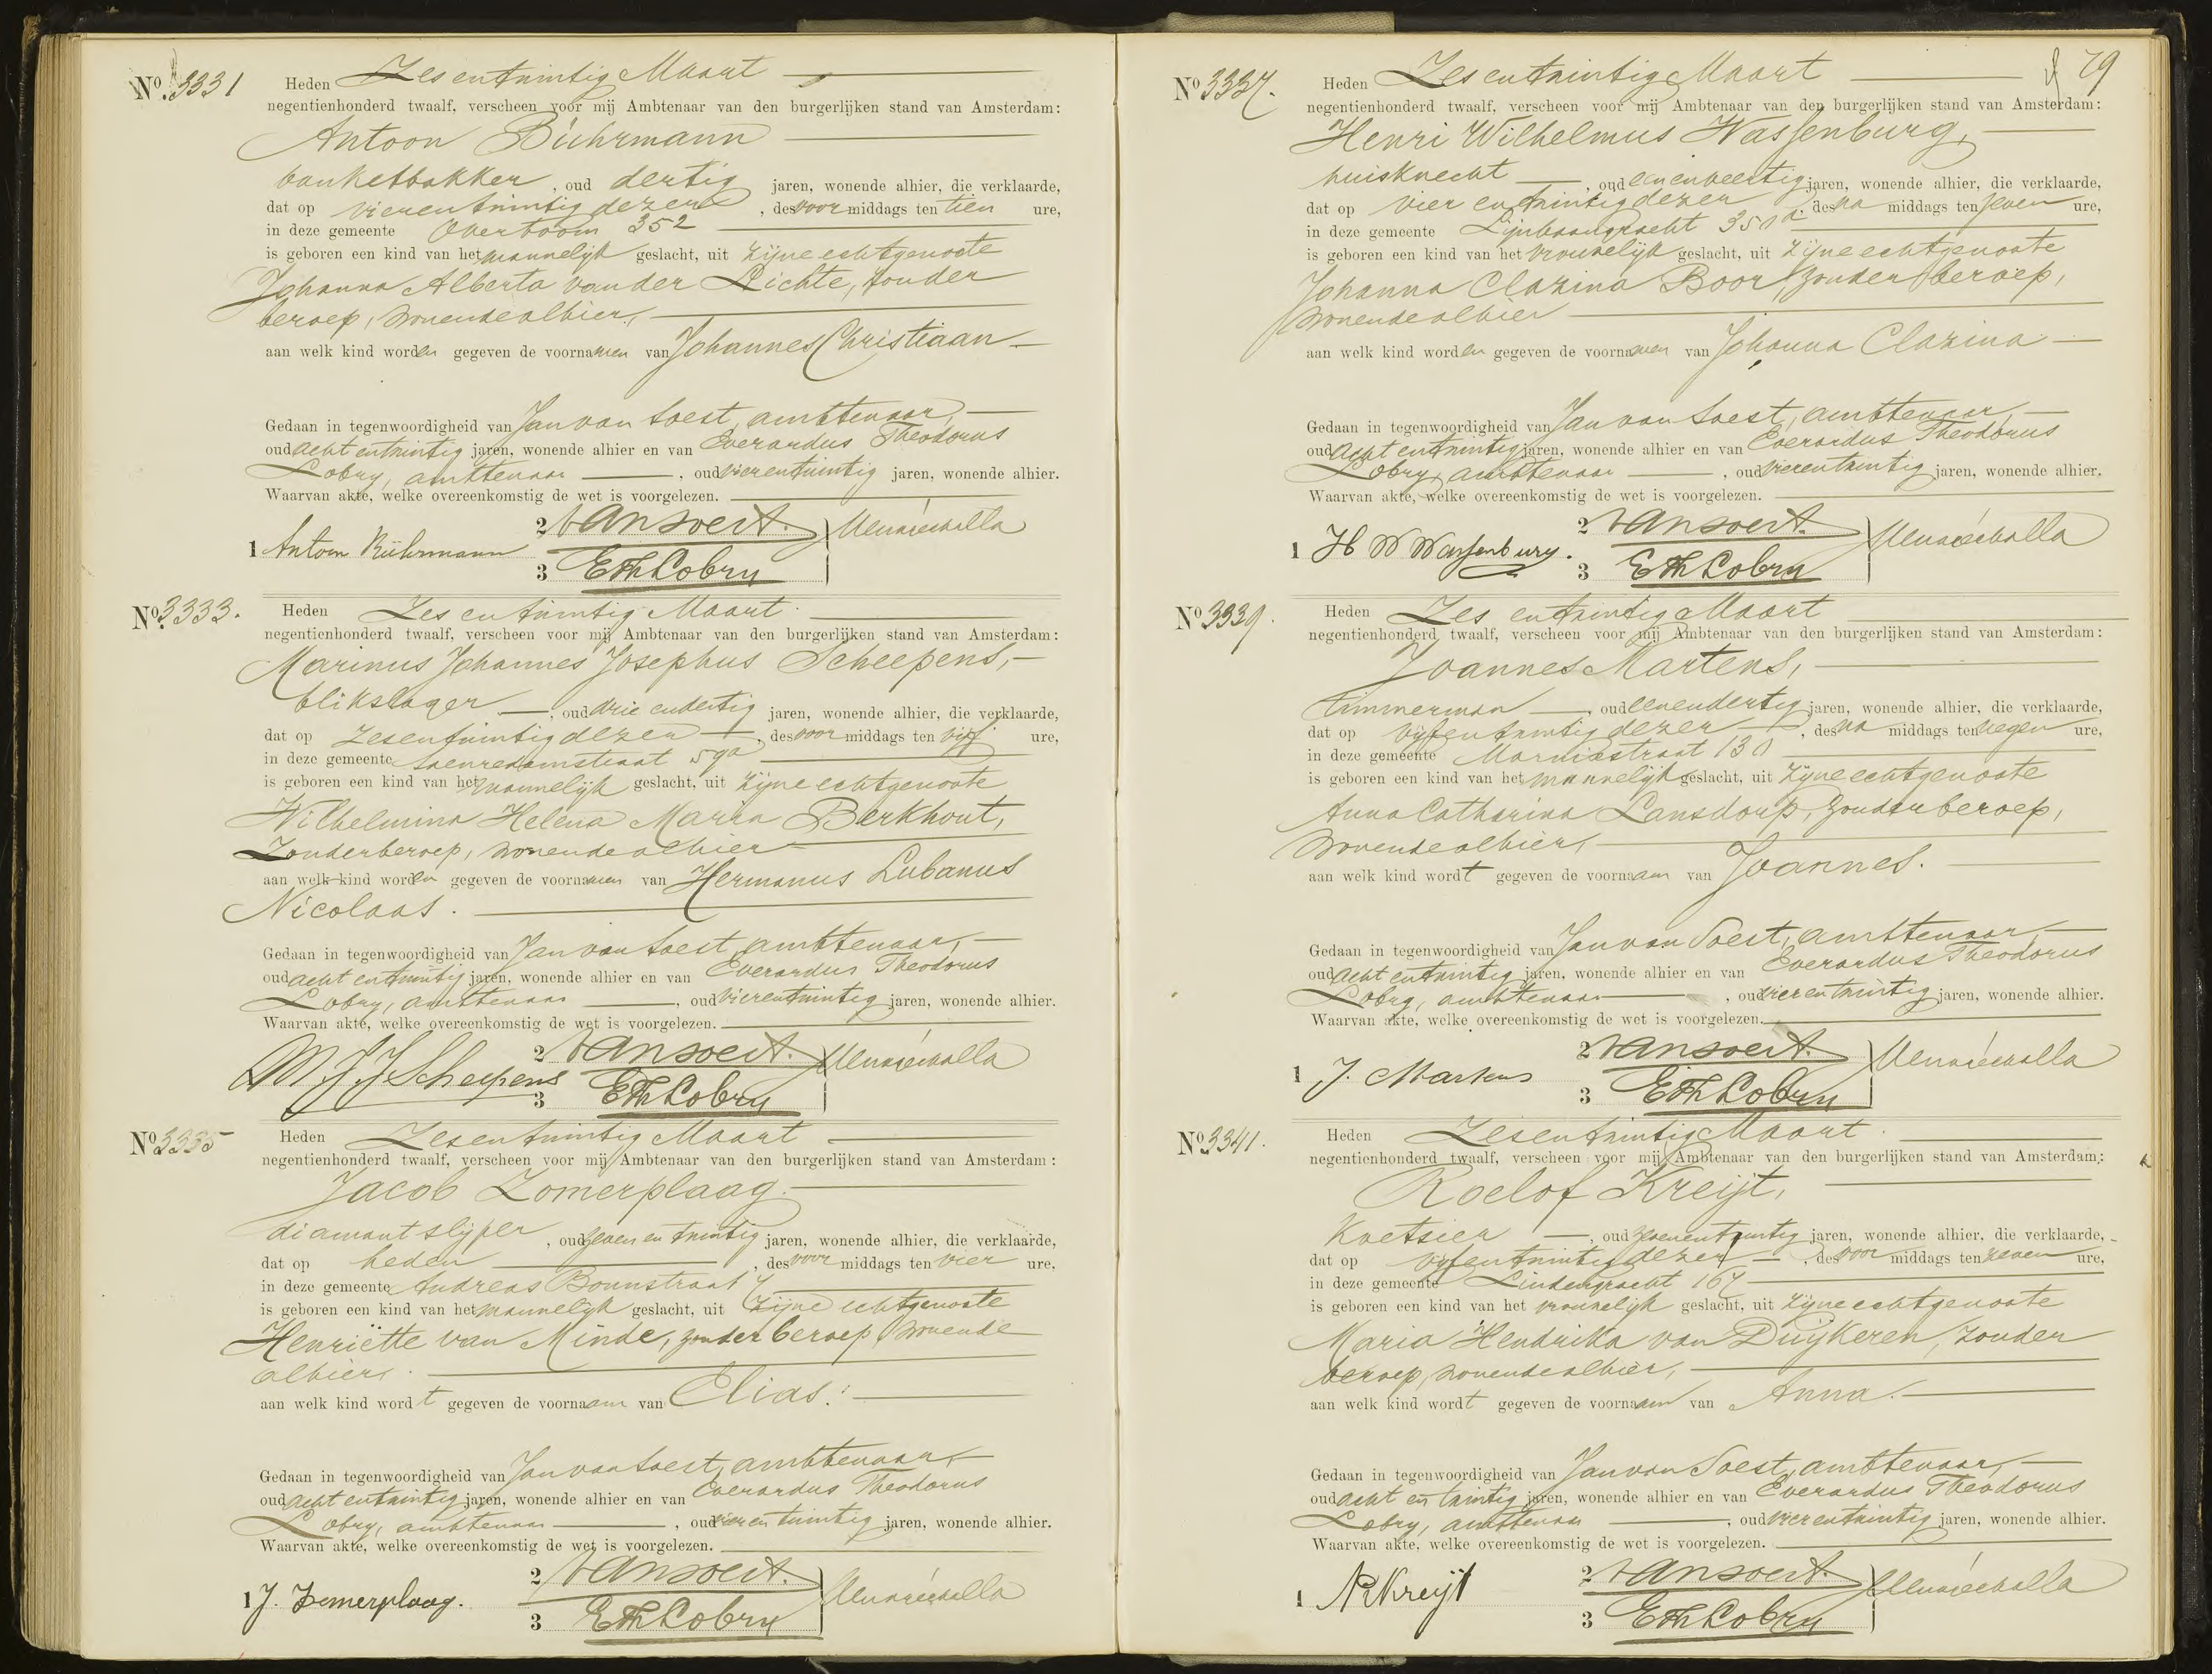 No. 3331
Heden Zes en twintig Maart
negentienhonderd twaalf, verscheen voor mij Ambtenaar van den burgerlijken stand van Amsterdam:
Antoon Bührmann
banketbakker, oud dertig jaren, wonende alhier, die verklaarde,
dat op vier en twintig dezer, des voor middags ten tien ure,
in deze gemeente Overtoom 352
is geboren een kind van het mannelijk geslacht, uit zijne echtgenoote
Johanna Alberta van der Lichte, zonder
beroep, wonende alhier,
aan welk kind worden gegeven de voornamen van Johannes Christiaan
Gedaan in tegenwoordigheid van Jan van Soest, ambtenaar,
oud acht en twintig jaren, wonende alhier en van Everardus Theodorus
Lobry, ambtenaar, oud vier en twintig jaren, wonende alhier.
Waarvan akte, welke overeenkomstig de wet is voorgelezen.
1 Antoon Bührmann
2 van Soest.
3 E Th Lobry
No. 3333.
Heden Zes en twintig Maart
negentienhonderd twaalf, verscheen voor mij Ambtenaar van den burgerlijken stand van Amsterdam:
Marinus Johannes Josephus Scheepens,
blikslager, oud drie en dertig jaren, wonende alhier, die verklaarde,
dat op zes en twintig dezer, des voor middags ten vijf ure,
in deze gemeente Saenredamstraat 59a
is geboren een kind van het mannelijk geslacht, uit zijne echtgenoote
Wilhelmina Helena Maria Berkhout,
zonder beroep, wonende alhier
aan welk kind worden gegeven de voornamen van Hermanus Lubanus
Nicolaas.
Gedaan in tegenwoordigheid van Jan van Soest, ambtenaar,
oud acht en twintig jaren, wonende alhier en van Everardus Theodorus
Lobry, ambtenaar, oud vier en twintig jaren, wonende alhier.
Waarvan akte, welke overeenkomstig de wet is voorgelezen.
M J J Scheepens
2 van Soest.
3 E Th Lobry
No. 3335
Heden Zes en twintig Maart
negentienhonderd twaalf, verscheen voor mij Ambtenaar van den burgerlijken stand van Amsterdam:
Jacob Zomerplaag
diamantslijper, oud zeven en twintig jaren, wonende alhier, die verklaarde,
dat op heden, des voor middags ten vier ure,
in deze gemeente Andreas Bonnstraat
is geboren een kind van het mannelijk geslacht, uit zijne echtgenoote
Henriëtte van Minde, zonder beroep, wonende
alhier.
aan welk kind wordt gegeven de voornaam van Elias.
Gedaan in tegenwoordigheid van Jan van Soest, ambtenaar,
oud acht en twintig jaren, wonende alhier en van Everardus Theodorus
Lobry, ambtenaar, oud vier en twintig jaren, wonende alhier.
Waarvan akte, welke overeenkomstig de wet is voorgelezen.
1 J. Zomerplaag.
2 van Soest.
3 E Th Lobry
79
No 3337.
Heden Zes en twintig Maart
negentienhonderd twaalf, verscheen voor mij Ambtenaar van den burgerlijken stand van Amsterdam:
Henri Wilhelmus Wassenburg,
huisknecht, oud een en veertig jaren, wonende alhier, die verklaarde,
dat op vier en twintig dezer, des na middags ten zeven ure,
in deze gemeente Lijnbaansgracht 351a
is geboren een kind van het vrouwelijk geslacht, uit zijne echtgenoote
Johanna Clazina Boor, zonder beroep,
wonende alhier
aan welk kind worden gegeven de voornamen van Johanna Clazina
Gedaan in tegenwoordigheid van Jan van Soest, ambtenaar,
oud acht en twintig jaren, wonende alhier en van Everardus Theodorus
Lobry, ambtenaar, oud vier en twintig jaren, wonende alhier.
Waarvan akte, welke overeenkomstig de wet is voorgelezen.
1 H W Wassenburg.
2 van Soest.
3 E Th Lobry
No 3339.
Heden Zes en twintig Maart
negentienhonderd twaalf, verscheen voor mij Ambtenaar van den burgerlijken stand van Amsterdam:
Joannes Martens,
timmerman, oud een en dertig jaren, wonende alhier, die verklaarde,
dat op vijf en twintig dezer, des na middags ten negen ure,
in deze gemeente Marnixstraat 131
is geboren een kind van het mannelijk geslacht, uit zijne echtgenoote
Anna Catharina Lansdorp, zonder beroep,
wonende alhier,
aan welk kind wordt gegeven de voornaam van Joannes.
Gedaan in tegenwoordigheid van Jan van Soest, ambtenaar,
oud acht en twintig jaren, wonende alhier en van Everardus Theodorus
Lobry, ambtenaar, oud vier en twintig jaren, wonende alhier.
Waarvan akte, welke overeenkomstig de wet is voorgelezen.
1 J. Martens
2 van Soest.
3 E Th Lobry
No 3341.
Heden Zes en twintig Maart
negentienhonderd twaalf, verscheen voor mij Ambtenaar van den burgerlijken stand van Amsterdam:
Roelof Kreijt,
Koetsier, oud zeven en twintig jaren, wonende alhier, die verklaarde,
dat op vijf en twintig dezer, des voor middags ten zeven ure,
in deze gemeente Lindengracht 167
is geboren een kind van het vrouwelijk geslacht, uit zijne echtgenoote
Maria Hendrika van Duijkeren, zonder
beroep, wonende alhier,
aan welk kind wordt gegeven de voornaam van Anna.
Gedaan in tegenwoordigheid van Jan van Soest, ambtenaar,
oud acht en twintig jaren, wonende alhier en van Everardus Theodorus
Lobry, ambtenaar, oud vier en twintig jaren, wonende alhier.
Waarvan akte, welke overeenkomstig de wet is voorgelezen.
1 R Kreijt
2 van Soest.
3 E Th Lobry